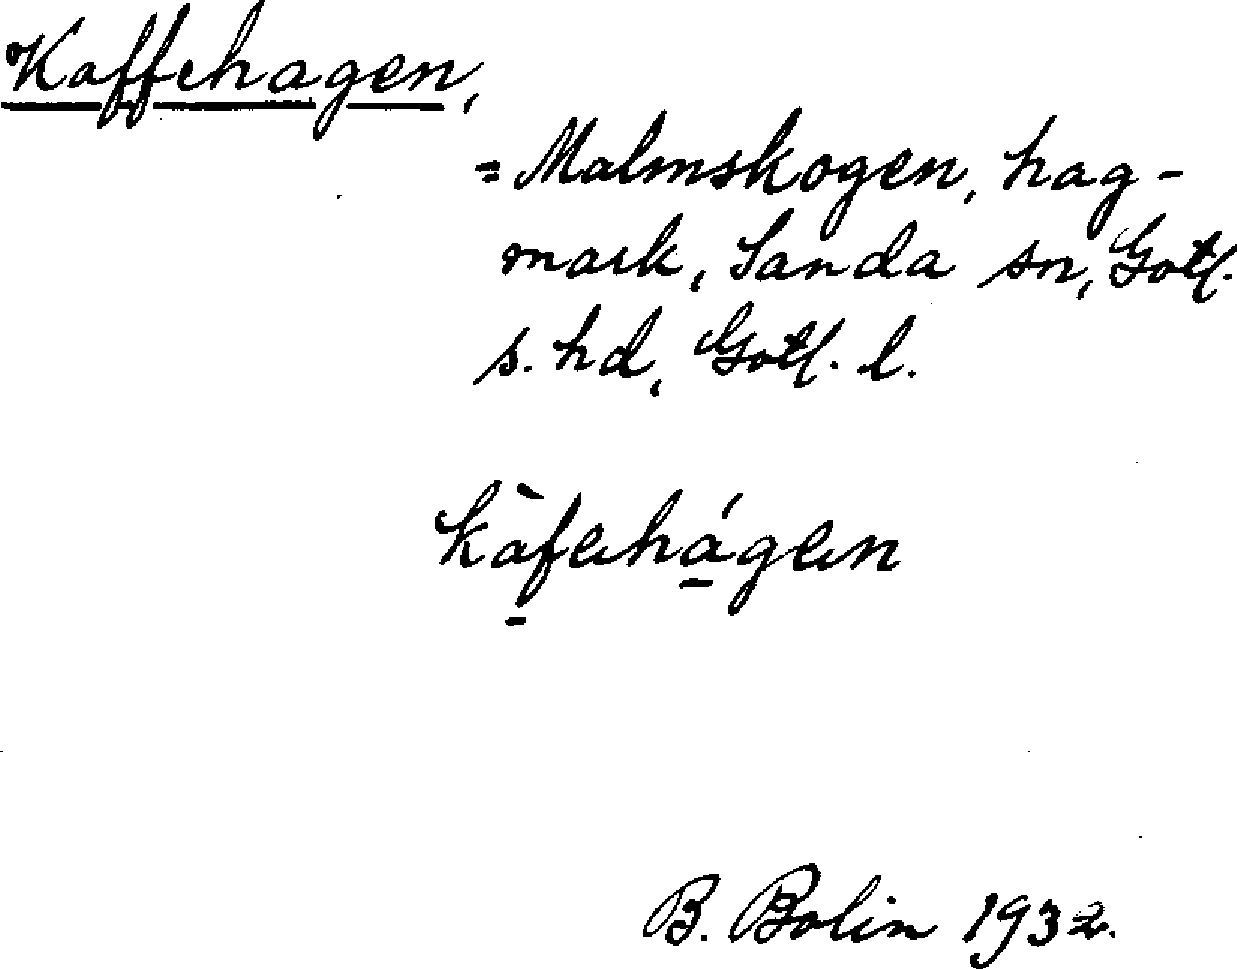 Kaffehagen,
= Malmskogen, hag-
mark, Sanda sn, Gotl.
s. hd, Gotl. l.
kàfehágen
B. Bolin 1932.